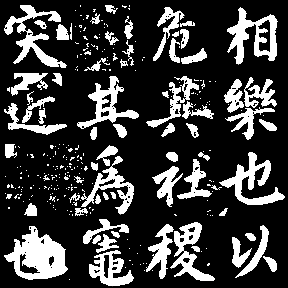 相樂也以
危其社稷
其爲竈
突近也